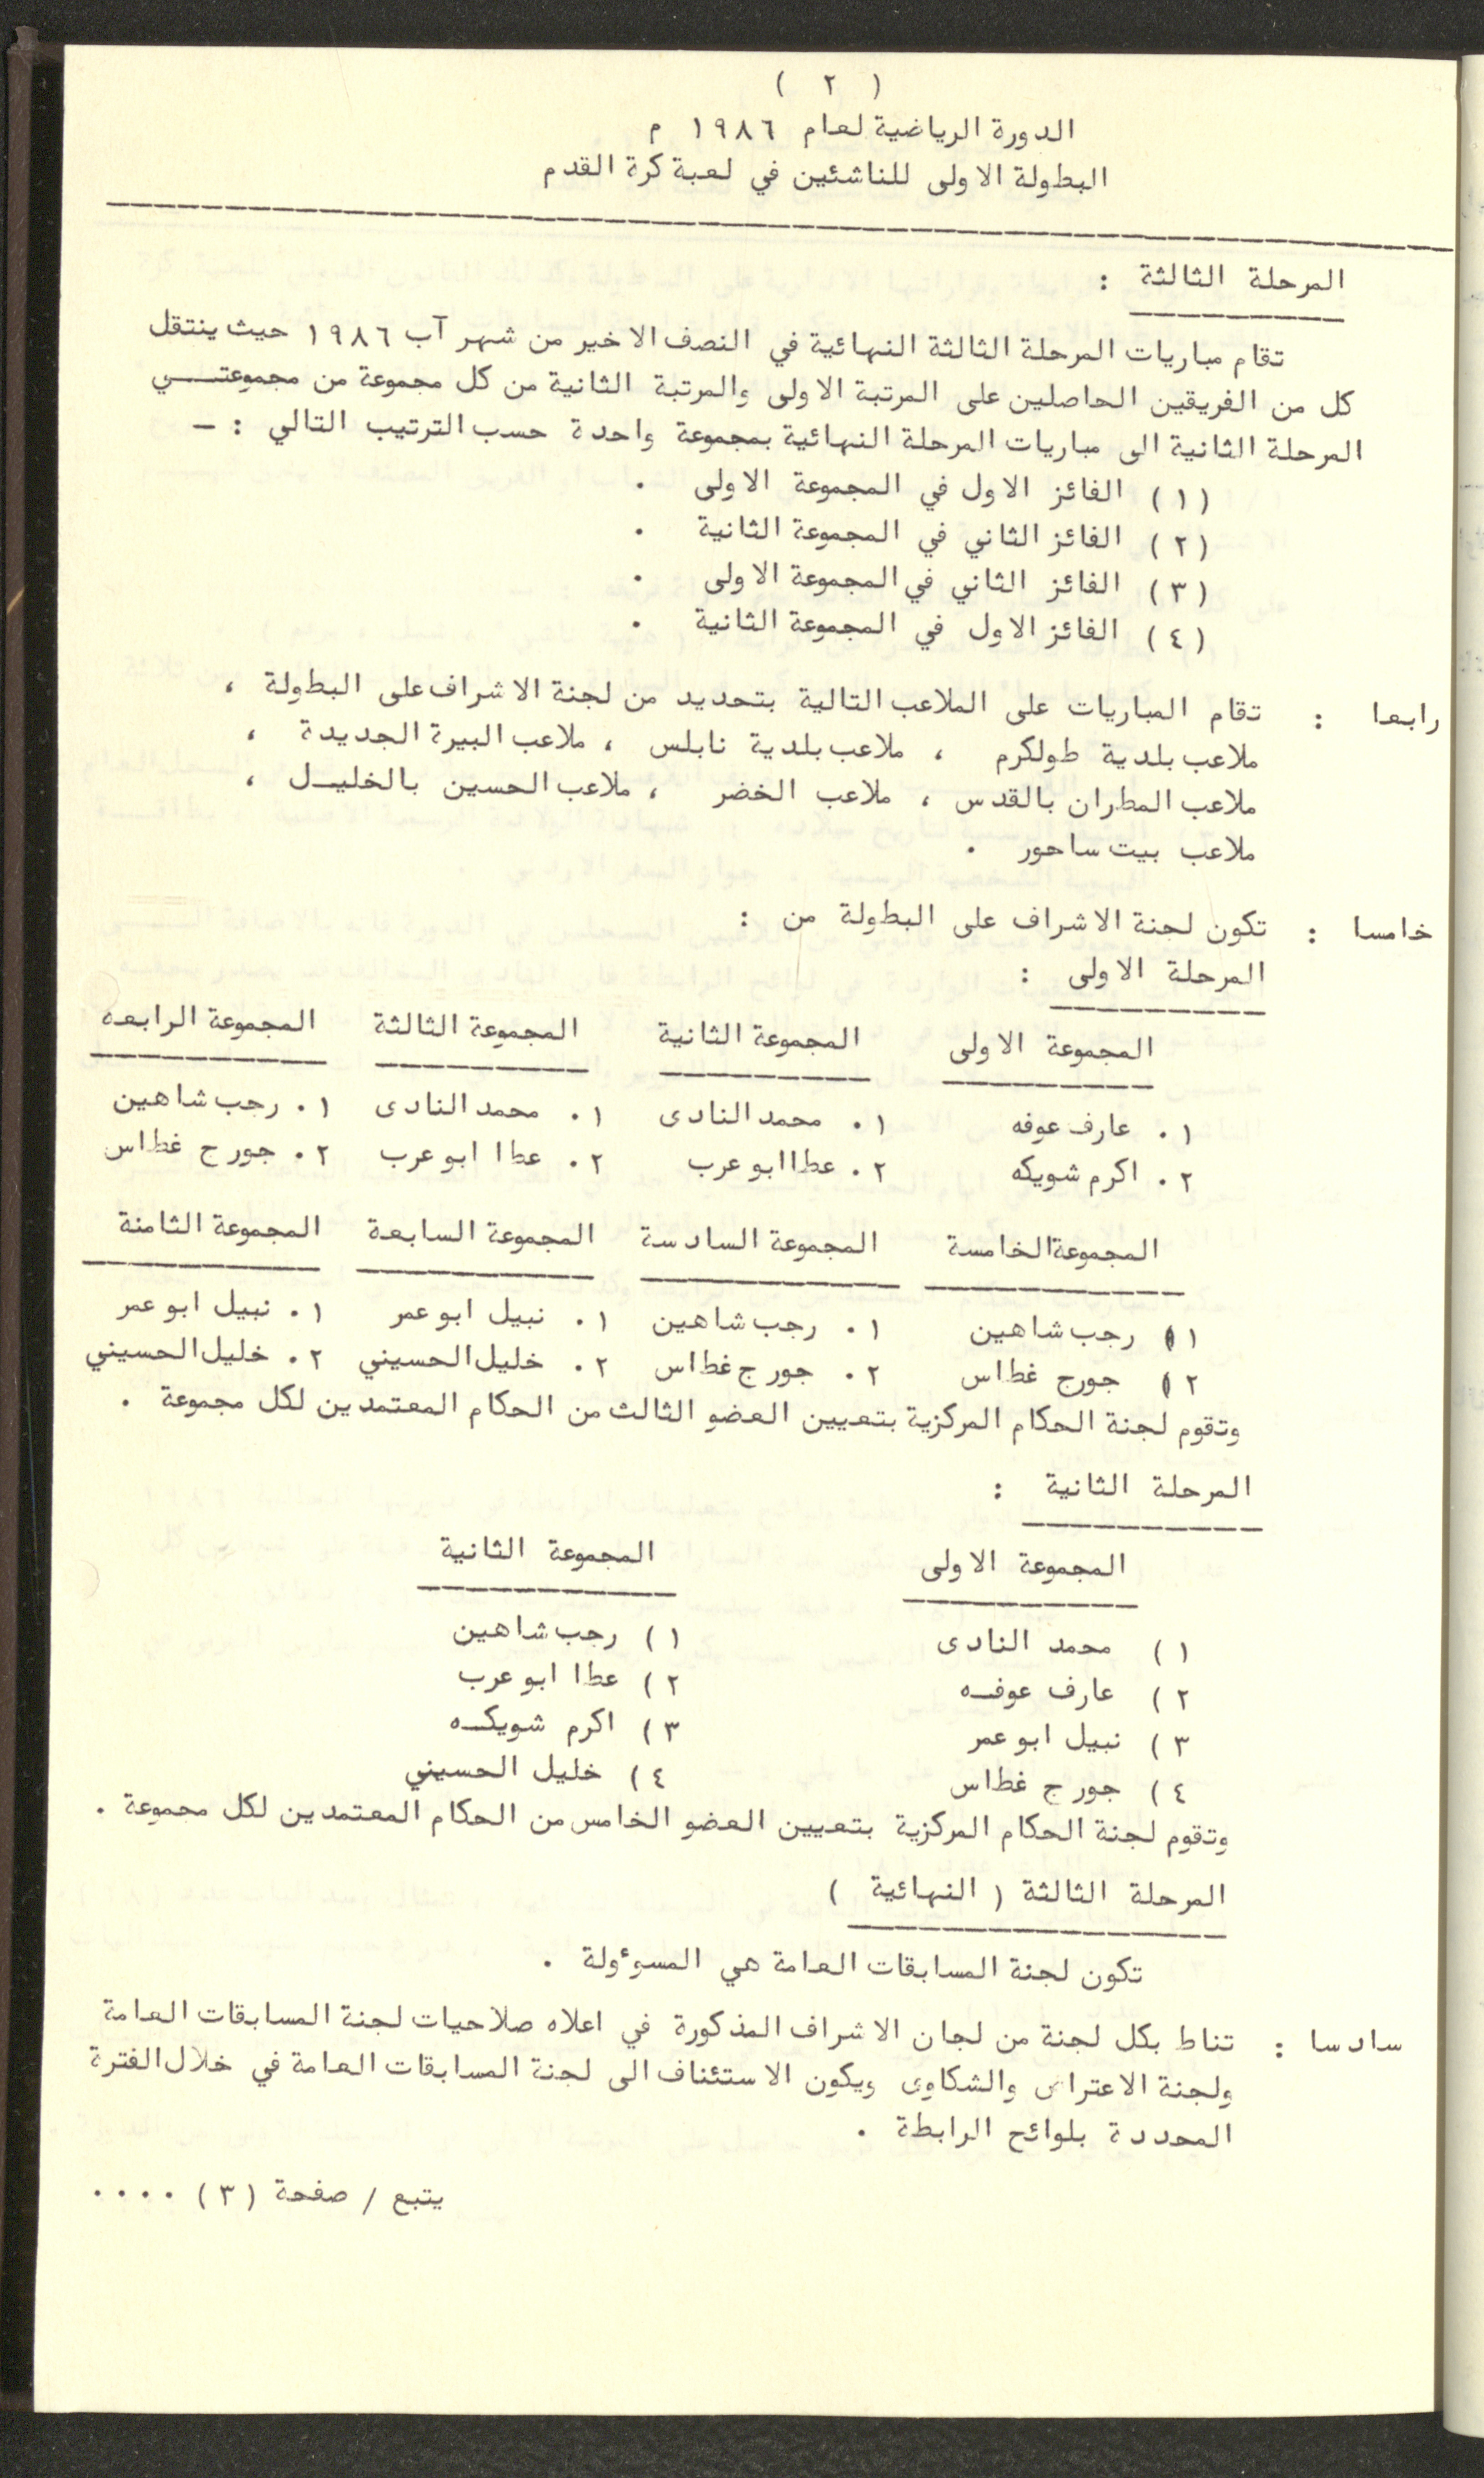 ( ٢ )
الدورة الرياضية لعام ١٩٨٦ م
البطولة الاولى للناشئين في لعبة كرة القدم
المرحلة الثالثة :
تقام مباريات المرحلة الثالثة النهائية في النصف الاخير من شهر آب ١٩٨٦ حيث ينتقل
كل من الفريقين الحاصلين على المرتبة الاولى والمرتبة الثانية من كل مجموعة من مجموعتـــي
المرحلة الثانية الى مباريات المرحلة النهائية بمجموعة واحدة حسب الترتيب التالي : -
(١) الفائز الاول في المجموعة الاولى .
(٢) الفائز الثاني في المجموعة الثانية .
(٣) الفائز الثاني في المجموعة الاولى .
(٤) الفائز الاول في المجموعة الثانية .
رابعا : تقام المباريات على الملاعب التالية بتحديد من لجنة الاشراف على البطولة ،
ملاعب بلدية طولكرم ، ملاعب بلدية نابلس ، ملاعب البيرة الجديدة ،
ملاعب المطران بالقدس ، ملاعب الخضر ، ملاعب الحسين بالخليــل ،
ملاعب بيت ساحور .
خامسا : تكون لجنة الاشراف على البطولة من :
المرحلة الاولى :
المجموعة الاولى المجموعة الثانية المجموعة الثالثة المجموعة الرابعه
١. عارف عوفه ١. محمد النادى ١. محمد النادى ١. رجب شاهين
٢. اكرم شويكه ٢. عطا ابو عرب ٢. عطا ابو عرب ٢. جورج غطاس
المجموعة الخامسة المجموعة السادسة المجموعة السابعة المجموعة الثامنة
١) رجب شاهين ١. رجب شاهين ١. نبيل ابو عمر ١. نبيل ابو عمر
٢) جورج غطاس ٢. جورج غطاس ٢. خليل الحسيني ٢. خليل الحسيني
وتقوم لجنة الحكام المركزية بتعيين العضو الثالث من الحكام المعتمدين لكل مجموعة .
المرحلة الثانية :
المجموعة الاولى المجموعة الثانية
١) محمد النادى ١) رجب شاهين
٢) عارف عوفـه ٢) عطا ابو عرب
٣) نبيل ابو عمر ٣) اكرم شويكـه
٤) جورج غطاس ٤) خليل الحسيني
وتقوم لجنة الحكام المركزية بتعيين العضو الخامس من الحكام المعتمدين لكل مجموعة .
المرحلة الثالثة ( النهائية )
تكون لجنة المسابقات العامة هي المسوءولة .
سادسا : تناط بكل لجنة من لجان الاشراف المذكورة في اعلاه صلاحيات لجنة المسابقات العامة
ولجنة الاعتراض والشكاوى ويكون الاستئناف الى لجنة المسابقات العامة في خلال الفترة
المحددة بلوائح الرابطة .
يتبع / صفحة (٣) ....